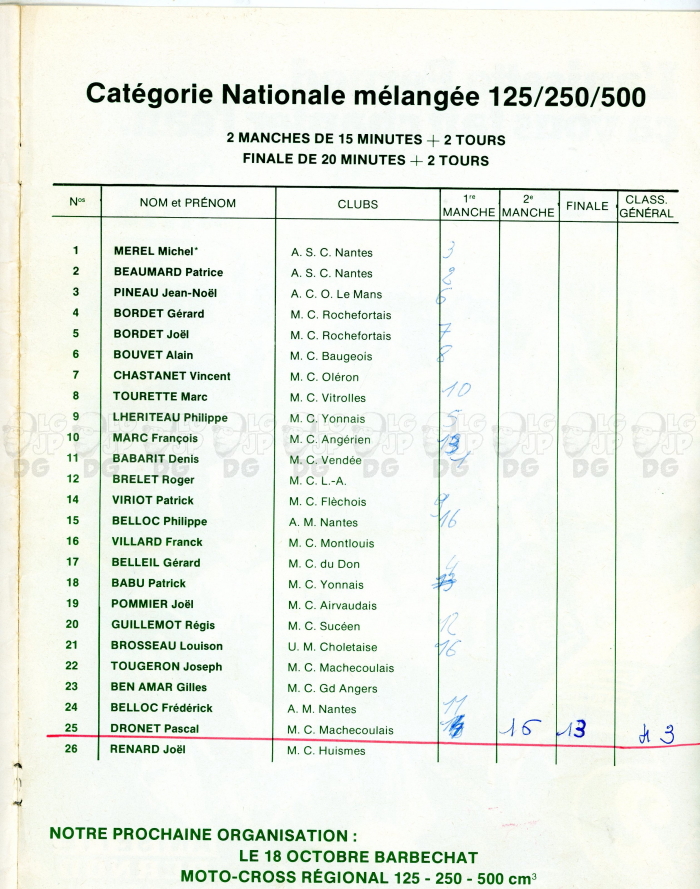 Catégorie Nationale mélangée 125/250/500
2 MANCHES DE 15 MINUTES + 2 TOURS
FINALE DE 20 MINUTES + 2 TOURS
Nos NOM et PRÉNOM CLUBS 1re MANCHE 2e MANCHE FINALE CLASS. GÉNÉRAL
1 MEREL Michel* A. S. C. Nantes 3
2 BEAUMARD Patrice A. S. C. Nantes 2
3 PINEAU Jean-Noël A. C. O. Le Mans 6
4 BORDET Gérard M. C. Rochefortais
5 BORDET Joël M. C. Rochefortais 7
6 BOUVET Alain M. C. Baugeois 8
7 CHASTANET Vincent M. C. Oléron
8 TOURETTE Marc M. C. Vitrolles 10
9 LHERITEAU Philippe M. C. Yonnais 5
10 MARC François M. C. Angérien 13
11 BABARIT Denis M. C. Vendée 1
12 BRELET Roger M. C. L.-A.
14 VIRIOT Patrick M. C. Flèchois 9
15 BELLOC Philippe A. M. Nantes 16
16 VILLARD Franck M. C. Montlouis
17 BELLEIL Gérard M. C. du Don 4
18 BABU Patrick M. C. Yonnais
19 POMMIER Joël M. C. Airvaudais
20 GUILLEMOT Régis M. C. Sucéen 12
21 BROSSEAU Louison U. M. Choletaise 16
22 TOUGERON Joseph M. C. Machecoulais
23 BEN AMAR Gilles M. C. Gd Angers
24 BELLOC Frédérick A. M. Nantes 11
25 DRONET Pascal M. C. Machecoulais 15 13 13
26 RENARD Joël M. C. Huismes
LG JP DG LG JP DG LG JP DG LG JP DG LG JP DG LG JP DG LG JP DG
NOTRE PROCHAINE ORGANISATION :
LE 18 OCTOBRE BARBECHAT
MOTO-CROSS RÉGIONAL 125 - 250 - 500 cm³